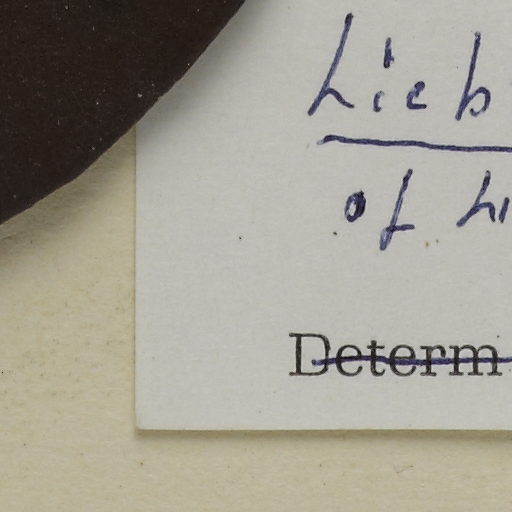 Lieb
of
Determ